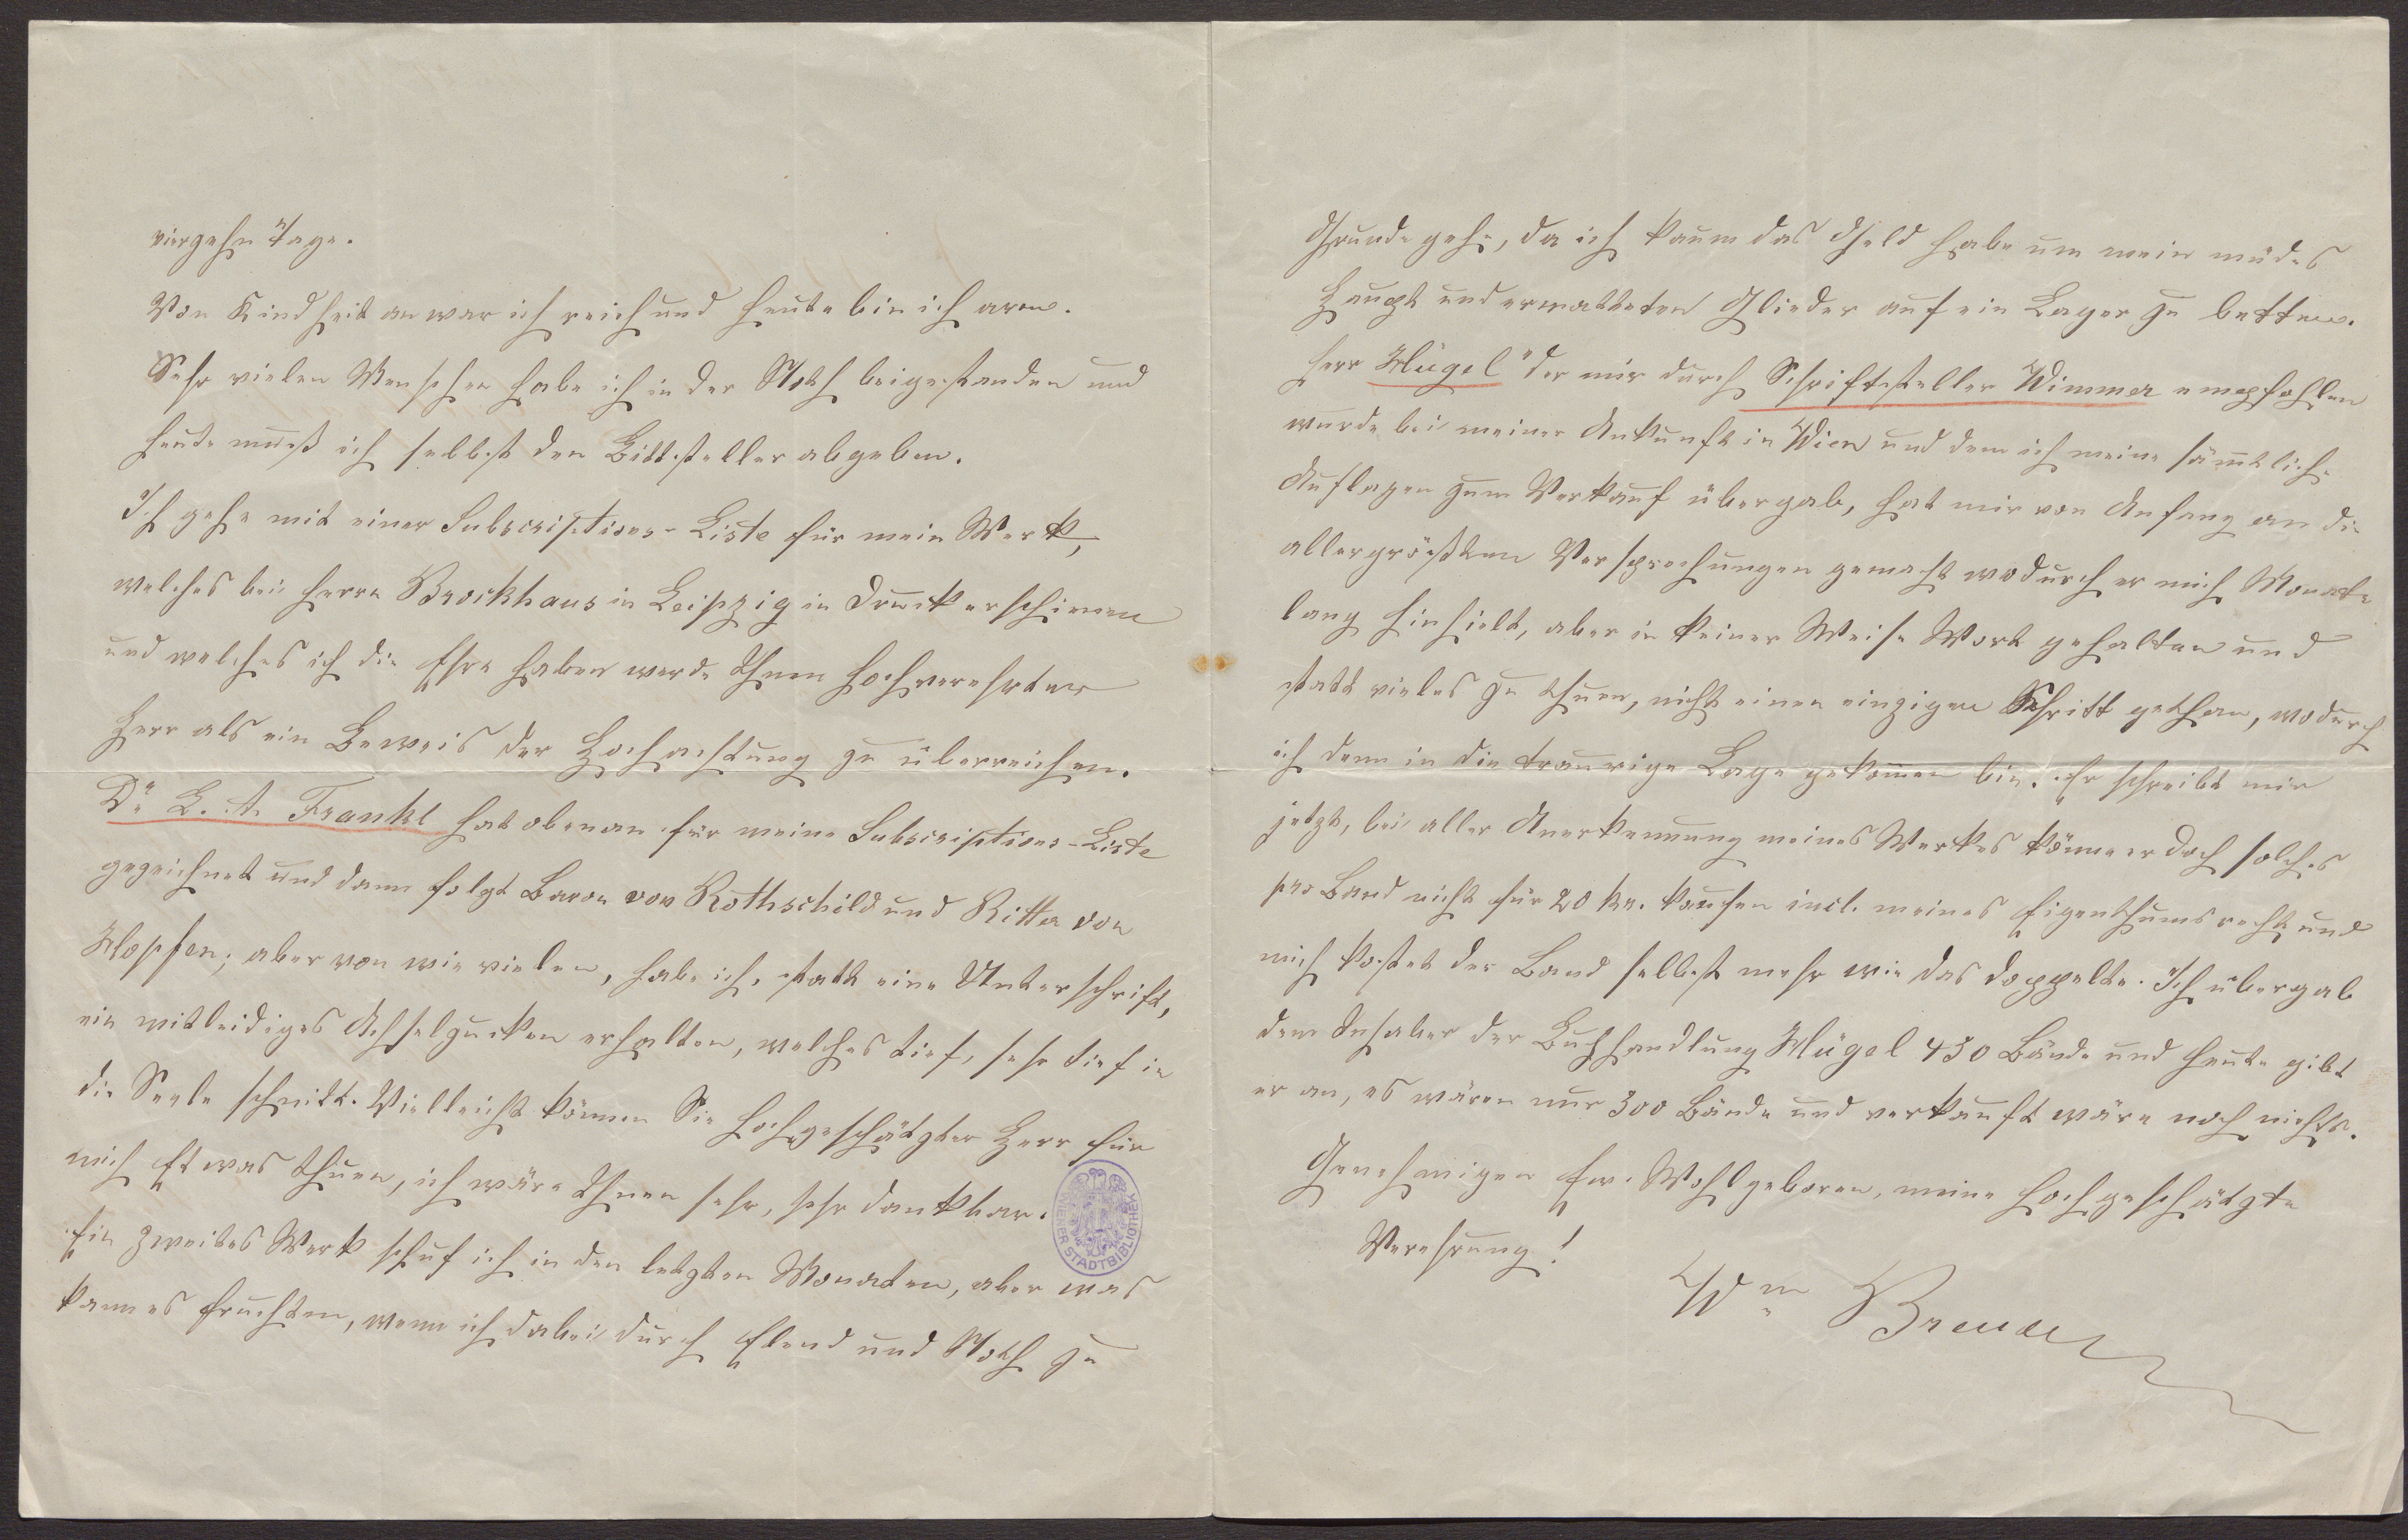 vierzehn Tage.
Von Kindheit an war ich reich und heute bin ich arm.
Sehr vielen Menschen habe ich in der Noth beigestanden und
heute muß ich selbst den Bittsteller abgeben.
Ich gehe mit einer Subscriptions-Liste für mein Werk,
welches bei Herrn Brockhaus in Leipzig in Druck erschienen
und welches ich die Ehre haben werde Ihnen hochverehrter
Herr als ein Beweis der Hochachtung zu überreichen.
Dr L. A. Frankl hat obenan für meine Subscriptions-Liste
gezeichnet und dann folgt Baron von Rothschild und Ritter von
Klopfen; aber von wie vielen, habe ich, statt eine Unterschrift,
ein mitleidiges Achselzucken erhalten, welches tief, sehr tief in
die Seele schnitt. Vielleicht können Sie hochgeschätzter Herr für
mich Etwas thuen, ich wäre Ihnen sehr, sehr dankbar.
Ein zweites Werk schuf ich in den letzten Monaten, aber was
kann es fruchten, wenn ich dabei durch Elend und Noth zu
WIENER STADTBIBLIOTHEK
Grunde gehe, da ich kaum das Geld habe um mein müdes
Haupt und ermatteten Glieder auf ein Lager zu betten.
Herr Klügel der mir durch Schriftsteller Wimmer empfohlen
wurde bei meiner Ankunft in Wien und dem ich meine sämtliche
Auflagen zum Verkauf übergab, hat mir von Anfang an die
allergrößten Versprechungen gemacht wodurch er mich Monate
lang hinhielt, aber in keiner Weise Wort gehalten und
statt vieles zu thuen, nicht einen einzigen Schritt gethan, wodurch
ich denn in die traurige Lage gekommen bin. Er schreibt mir
jetzt, bei aller Anerkennung meines Werkes könne er doch solches
pro Band nicht für 20 kr. kaufen incl. meines Eigenthumsrecht und
mich kostet der Band selbst mehr wie das doppelte. Ich übergab
dem Inhaber der Buchhandlung Klügel 430 Bände und heute gibt
er an, es wären nur 300 Bände und verkauft wäre noch nichts.
Genehmigen Ew. Wohlgeboren, meine hochgeschätzte
Verehrung!
Wm